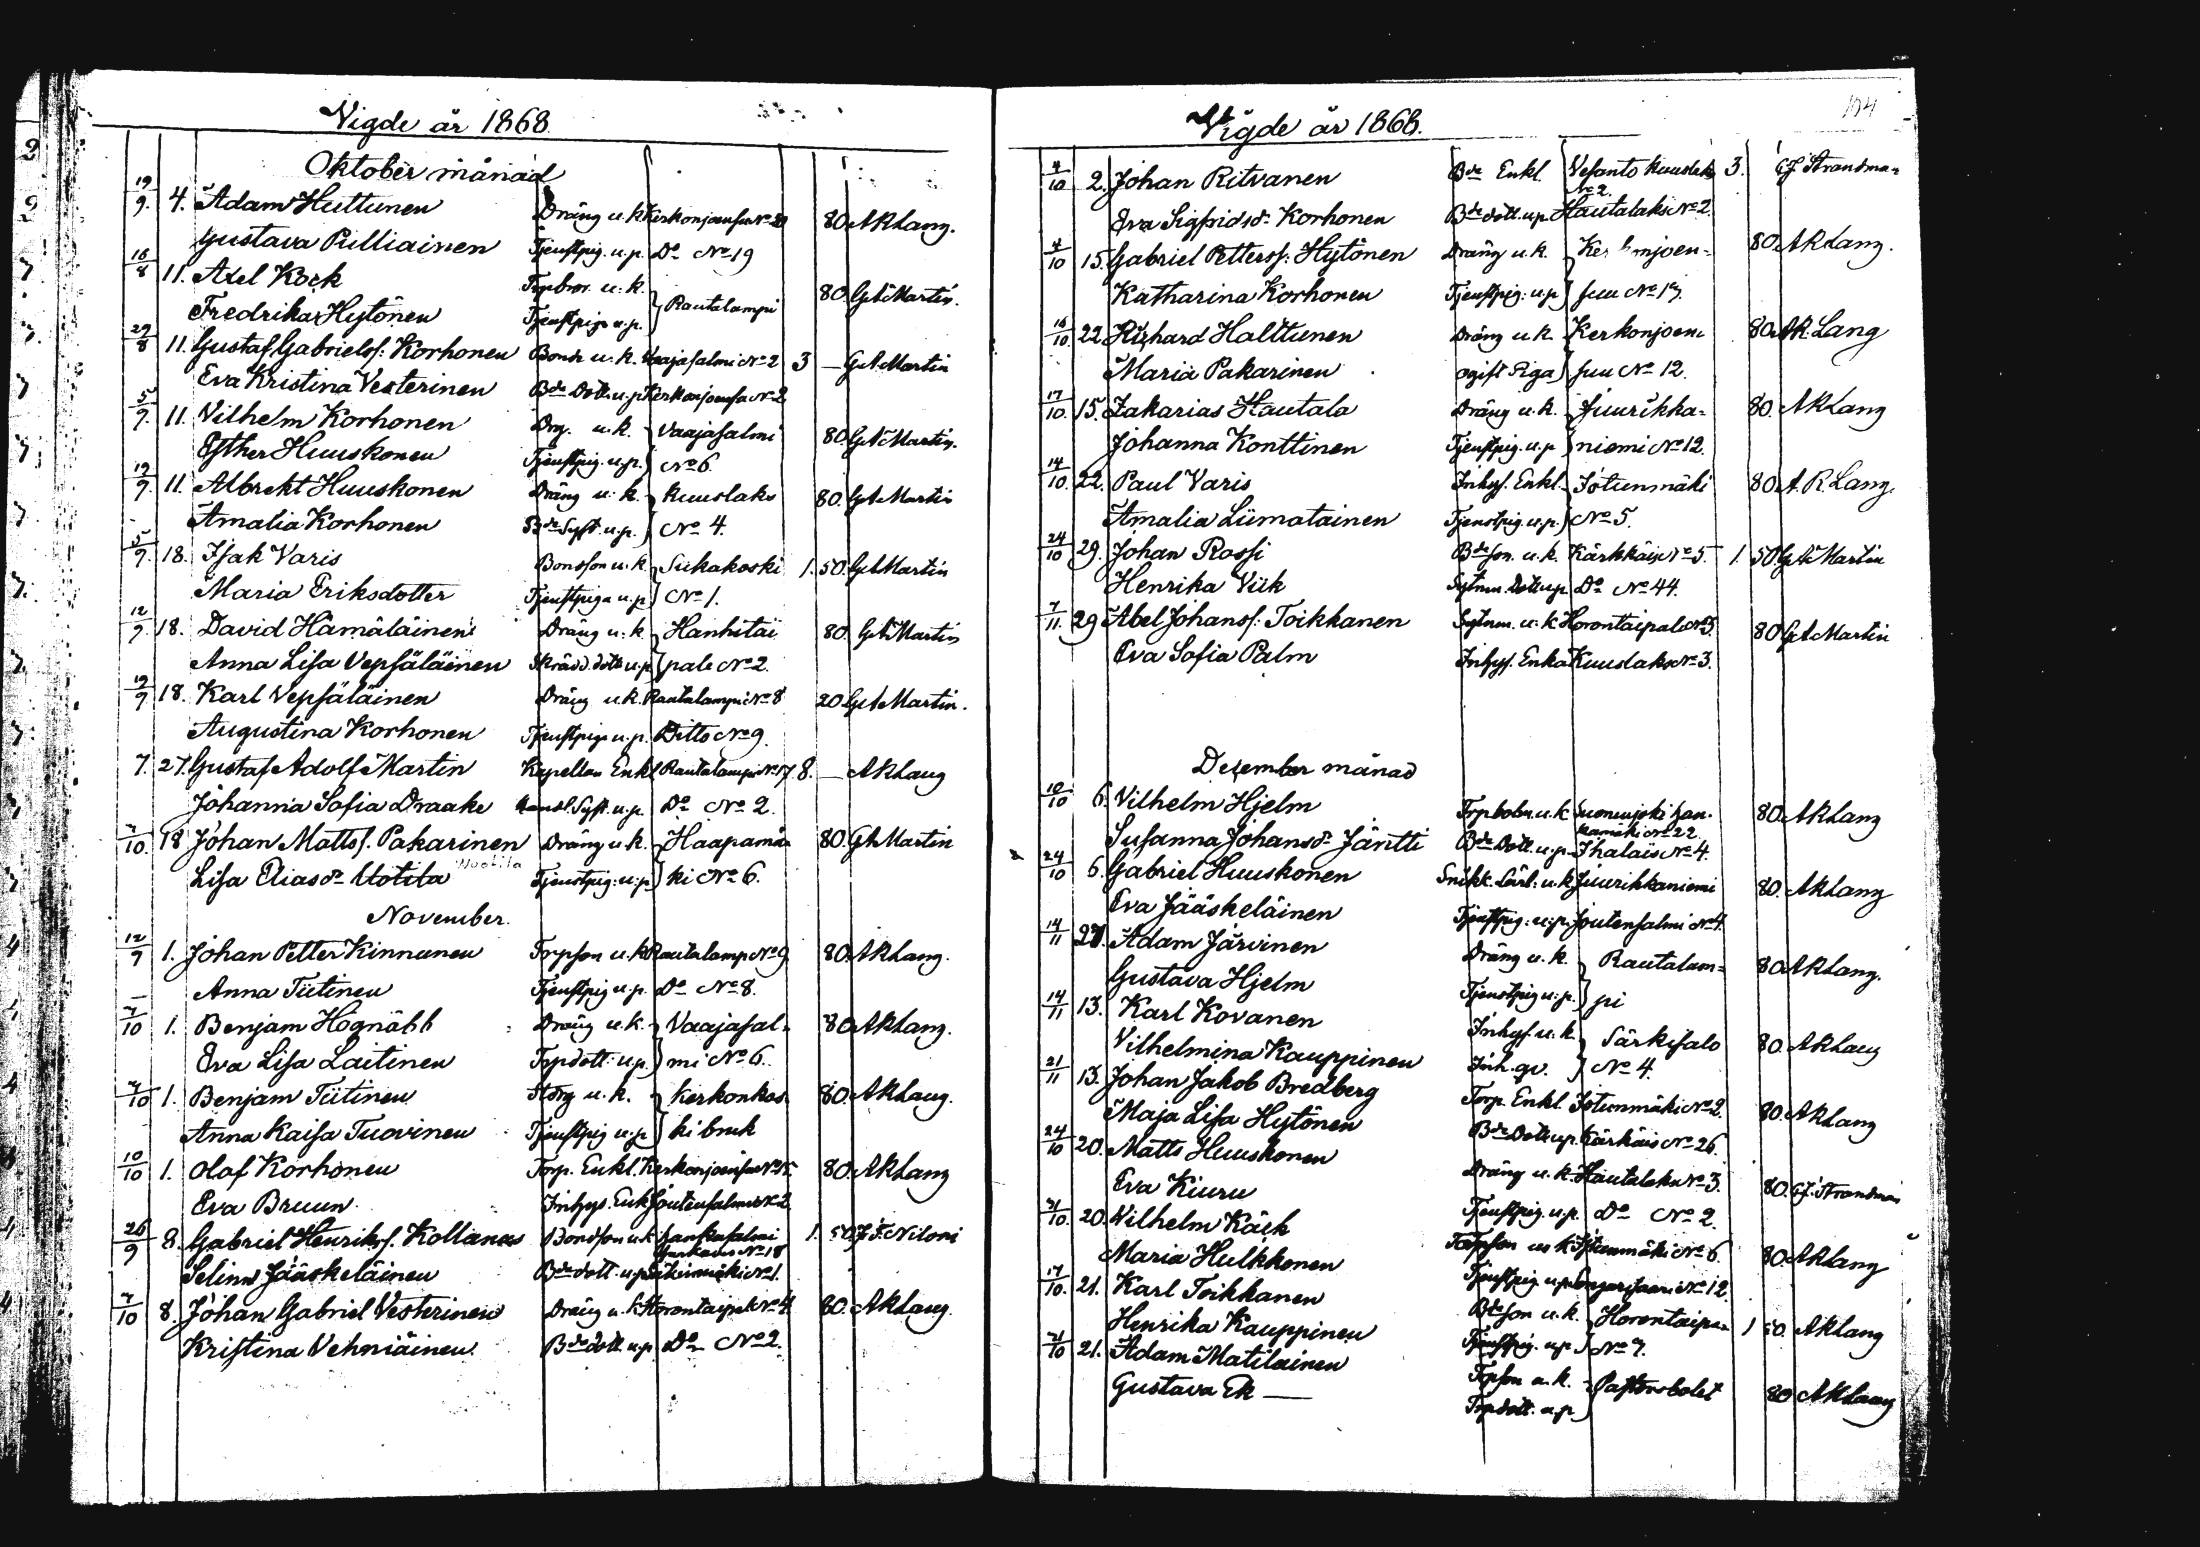 Vigde år 1868.
Oktober månad
19/9. 4. Adam Huttunen Dräng u.k. Kerkonjoensuu No 20 80 AKLang.
Gustava Pulliainen Tjenstpig. u.p. Do No 19
16/8 11. Axel Kock Torpbror. u.k. } 80. GAMartin.
Fredrika Hytönen Tjenstpiga u.p. } Rautalampi
29/8 11. Gustaf Gabrielsf: Korhonen Bonde u.k. Vaajasalmi No 2 3 — GAMartin
Eva Kristina Vesterinen Bde Dott. u.p. Kerkonjoensu No 2
5/9. 11. Vilhelm Korhonen Drg. u.k. } Vaajasalmi 80. GAMartin.
Esther Huuskonen Tjenstpig. u.p. } No 6.
19/9. 11. Albrekt Huuskonen Dräng u.k. } Kuuslaks 80. GAMartin
Amalia Korhonen Bde Syst. u.p. } No 4.
5/9. 18. Isak Varis Bondson u.k. } Siikakoski 1. 50. GAMartin
Maria Eriksdotter Tjenstpiga u.p. } No 1.
12/9. 18. David Hämäläinen Dräng u.k. } Hanhitai 80. GAMartin
Anna Lisa Vepsäläinen Skrädd. dott. u.p. } pale No 2.
19/9 18. Karl Vepsäläinen Dräng u.k. Rautalampi No 8 20 GAMartin.
Augustina Korhonen Tjenstpiga u.p. Ditto No 9.
7. 27. Gustaf Adolf Martin Kapellan Enkl. Rautalampi No 17 8. — AKLang
Johanna Sofia Draake Syst. u.p. Do No 2.
7/10. 18 Johan Mattsf. Pakarinen Dräng u.k. } Haapamä- 80. GAMartin
Lisa Eliasdr Uotila Tjenstpig: u.p. } ki No 6.
November.
12/9 1. Johan Petter Kinnunen Torpson u.k. Rautalamp No 9 80. AKLang.
Anna Tiitinen Tjenstpig u.p. Do No 8.
7/10 1. Benjam Högnäbb Dräng u.k. } Vaajasal- 80 AKLang.
Eva Lisa Laitinen Torpdott: u.p. } mi No 6.
7/10 1. Benjam Tiitinen u.k. } Kerkonkos- 80. AKLang.
Anna Kaisa Tuovinen Tjenstpig u.p. } ki bruk
10/10 1. Olof Korhonen Torp. Enkl. Kerkonjoensuu No 15 80. AKLang
Eva Bruun Inhys. Enk. Joutensalmi No 2
26/9 8. Gabriel Henriksf. Kollanen Bondson u.k. Hankasalmi No 18 1. 50 Niloni
Selina Jääskeläinen Bde dott. u.p. No 1.
7/10 8. Johan Gabriel Vesterinen Dräng u.k. Horontaipal No 4. 80. AKLang.
Kristina Vehniäinen Bde dott. u.p. Do No 2.
104
Vigde år 1868.
4/10 2. Johan Ritvanen Bde Enkl. Vesanto No 2. 3. Strandman
Eva Sigfridsdr Korhonen Bde dott. u.p. Hautalaks No 2.
4/10 15. Gabriel Pettersf: Hytönen Dräng u.k. } Kerkonjoen- 80. AKLang.
Katharina Korhonen Tjenstpig: u.p. } suu No 19.
16/10 22. Rikhard Halttunen Dräng u.k. } Kerkonjoen- 80. AK. Lang
Maria Pakarinen ogift Piga } suu No 12.
17/10. 15. Zakarias Hautala Dräng u.k. } Juurikka- 80. AKLang
Johanna Konttinen Tjenstpig. u.p. } niemi No 12.
14/10. 22. Paul Varis Inhys. Enkl. } Istunmäki 80. A.K. Lang.
Amalia Liimatainen Tjenstpig. u.p. } No 5.
24/10 29. Johan Rossi Bdeson. u.k. Kärkkäis No 5. 1. 50. GAMartin
Henrika Viik Dott. u.p. Do No 44.
7/11. 29 Abel Johansf: Toikkanen Sytnm. u.k. Horontaipal No 5. 80 GAMartin
Eva Sofia Palm Inhys. Enka Kuuslaks No 3.
Desember månad
10/10 6. Vilhelm Hjelm u.k. Suonenjoki No 22. 80. AKLang
Susanna Johansdr Jäntti Bde Dott. u.p. Ihalais No 4.
24/10 6. Gabriel Huuskonen Snikk. Lärl: u.k. Juurikkaniemi 80. AKLang
Eva Jääskeläinen Tjenstpig: u.p. Joutensalmi No 4.
14/11 27. Adam Järvinen Dräng u.k. } Rautalam- 80 AKLang.
Gustava Hjelm Tjenstpig u.p. } pi
14/11 13. Karl Kovanen Inhys. u.k. } Särkisalo 80. AKLang
Vilhelmina Kauppinen Inh. qv. } No 4.
21/11 13. Johan Jakob Bredberg Torp. Enkl. Istunmäki No 2. 80. AKLang
Maja Lisa Hytönen Bde Dott. u.p. Kärkäis No 26.
24/10 20. Matts Huuskonen Dräng u.k. Hautalaks No 3. 80. Strandman
Eva Kiuru Tjenstpig. u.p. Do No 2.
21/10. 20. Wilhelm Käck Torpson u.k. Istunmäki No 6. 80. AKLang
Maria Hulkkonen Tjenstpig. u.p. No 12.
17/10. 21. Karl Toikkanen Bdeson u.k. } Horontaipa- 1 50. AKLang
Henrika Kauppinen Tjenstpig. u.p. } No 7.
21/10 21. Adam Matilainen Torpson u.k. } Pastorsbolet 80 AKLang
Gustava Ek — Torpdott. u.p. }